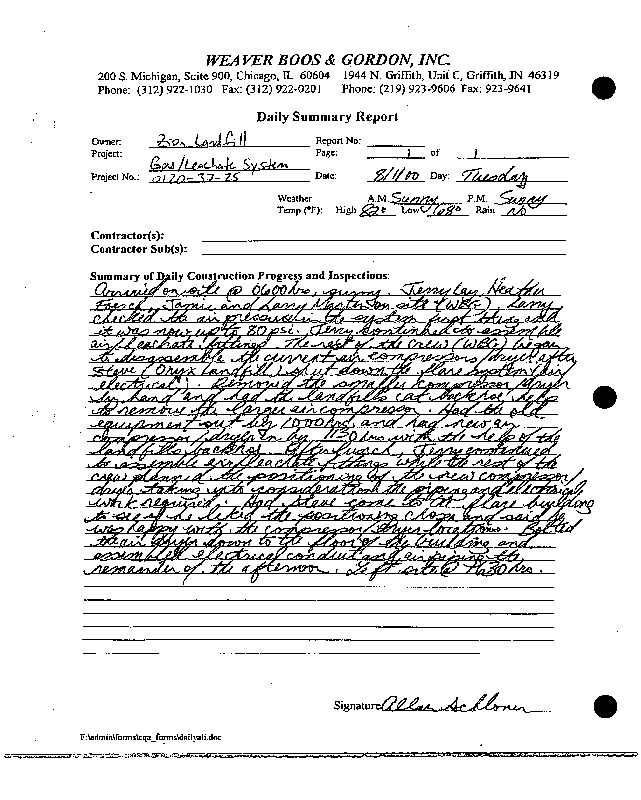 WEAVER BOOS & GORDON, INC.
200 S. Michigan, Suite 900, Chicago, IL 60604 1944 N. Griffith, Unit C, Griffith, IN 46319
Phone: (312) 922-1030 Fax: (312) 922-0201 Phone: (219) 923-9606 Fax: 923-9641
Daily Summary Report
Owner: Zion Landfill Report No:
Project: Gas/Leachate System Page: 1 of 1
Project No.: 0120-37-25 Date: 8/1/00 Day: Tuesday
Weather A.M. Sunny P.M. Sunny
Temp (°F): High 82° Low 68° Rain No
Contractor(s):
Contractor Sub(s):
Summary of Daily Construction Progress and Inspections:
Arrived on site @ 0600 hrs, sunny. Terry, Heather
Jamie and Larry on site (WBG). Larry
checked the air pressure in the system first thing and
it was now up to 80 psi. Terry continued to assemble
air/leachate fittings. The rest of the crew (WBG) began
to disassemble the current air compressors/dryer after
Steve (Onyx Landfill) shut down the flare system (air/
electrical). Removed the smaller compressor/dryer
by hand and had the landfills cat backhoe help
to remove the larger air compressor. Had the old
equipment out by 1000 hrs and had new air
compressor/dryer in by 1130 hrs with the help of the
landfills backhoe. After lunch, Terry continued
to assemble air/leachate fittings while the rest of the
crew planned the positioning of the new compressor/
dryer taking into consideration the piping and electrical
work required. Had Steve come to the flare building
to see if he liked the positioning and said he
was happy with the compressor/dryer locations. Bolted
the air dryer down to the floor of the building and
assembled electrical conduit and air piping the
remainder of the afternoon. Left site @ 1630 hrs.
Signature Allan Schloner
F:\admin\forms\cqa_forms\dailyali.doc